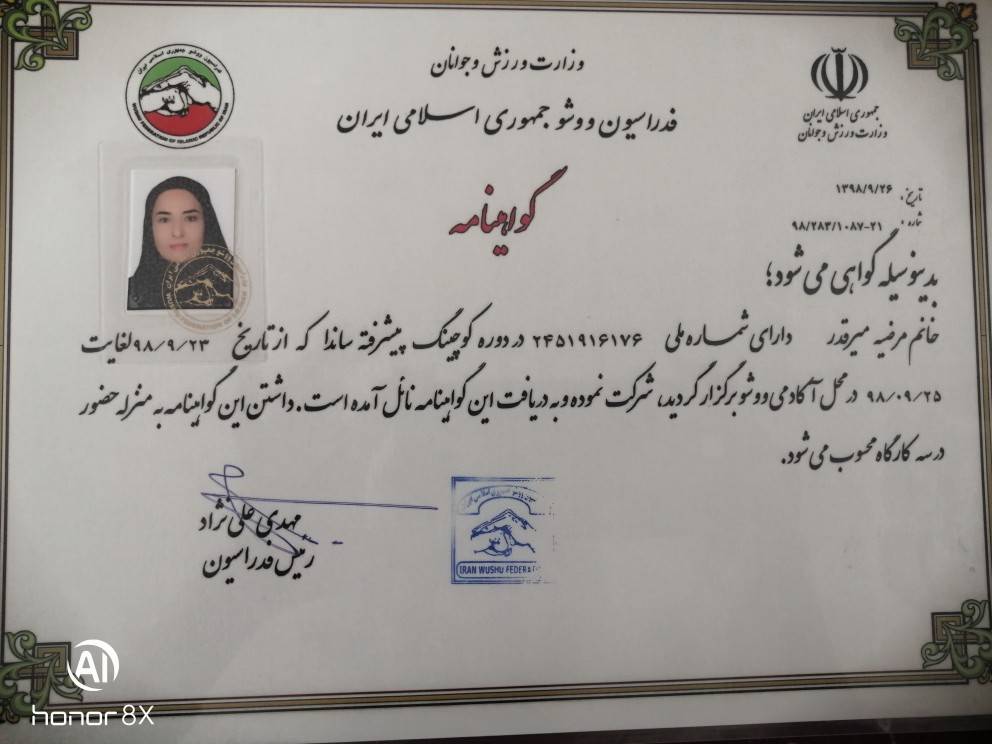 وزارت ورزش و جوانان
فدراسیون ووشو جمهوری اسلامی ایران
جمهوری اسلامی ایران
وزارت ورزش و جوانان
WUSHU FEDERATION OF ISLAMIC REPUBLIC OF IRAN
تاریخ: ۱۳۹۸/۹/۲۶
شماره: ۹۸/۲۸۳/۱۰۸۷-۲۱
گواهینامه
بدینوسیله گواهی می شود؛
خانم مرضیه میرقدر دارای شماره ملی ۲۴۵۱۹۱۶۱۷۶ در دوره کوچینگ پیشرفته ساندا که از تاریخ ۹۸/۹/۲۳ لغایت
۹۸/۰۹/۲۵ در محل آکادمی ووشو برگزار گردید، شرکت نموده و به دریافت این گواهینامه نائل آمده است. داشتن این گواهینامه به منزله حضور
در سه کارگاه محسوب می شود.
مهدی علی نژاد
رئیس فدراسیون
IRAN WUSHU FEDERA
AI
honor 8X